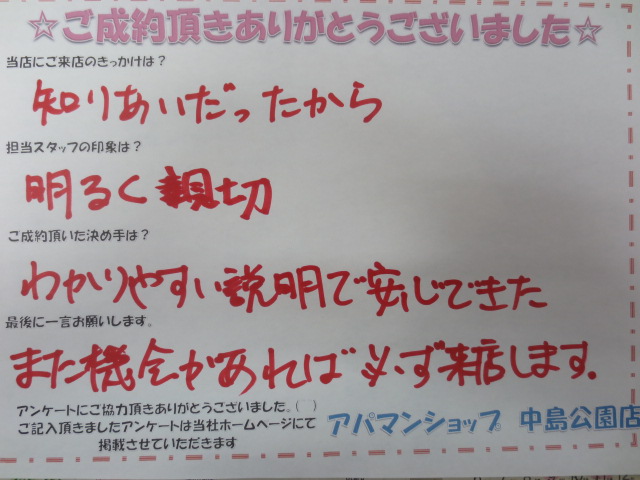 ☆ご成約頂きありがとうございました☆
当店にご来店のきっかけは？
知りあいだったから
担当スタッフの印象は？
明るく親切
ご成約頂いた決め手は？
わかりやすい説明で安心できた
最後に一言お願いします。
また機会があれば必ず来店します.
アンケートにご協力頂きありがとうございました。(　)
ご記入頂きましたアンケートは当社ホームページにて
掲載させていただきます
アパマンショップ 中島公園店